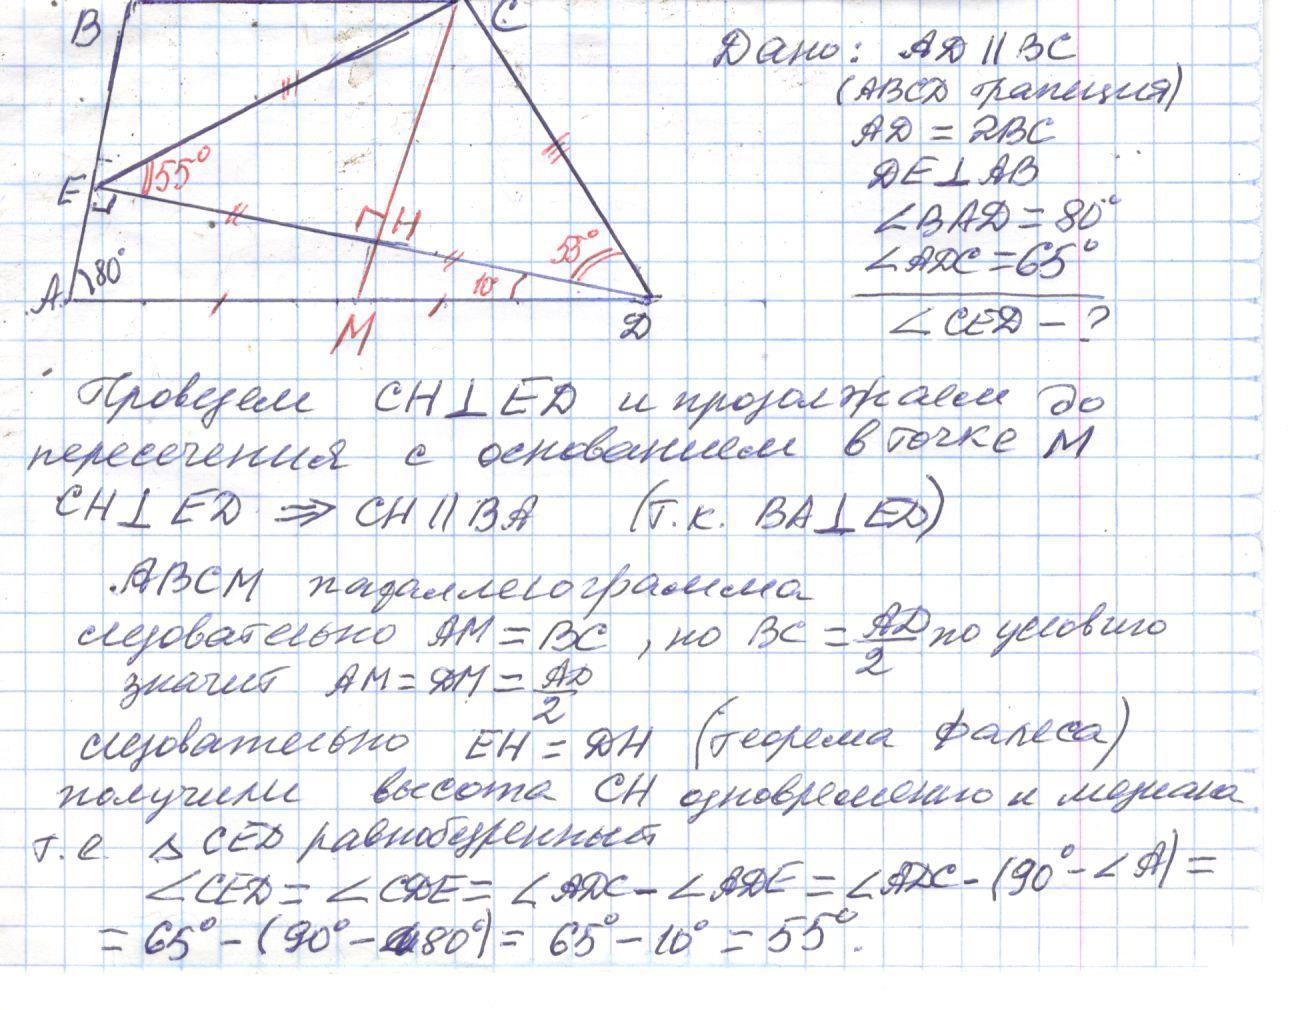 B C
E 55° H
A 80° M 10° 55° D
Дано: AD || BC
(ABCD трапеция)
AD = 2BC
DE ⊥ AB
∠BAD = 80°
∠ADC = 65°
∠CED - ?
Проведем CH ⊥ ED и продолжаем до
пересечения с основанием в точке M
CH ⊥ ED ⇒ CH || BA (т.к. BA ⊥ ED)
ABCM параллелограмма
следовательно AM = BC, но BC = AD/2 по условию
значит AM = DM = AD/2
следовательно EH = DH (теорема Фалеса)
получили высота CH одновременно и медиана
т.е. △ CED равнобедренный
∠CED = ∠CDE = ∠ADC - ∠ADE = ∠ADC - (90° - ∠A) =
= 65° - (90° - 80°) = 65° - 10° = 55°.